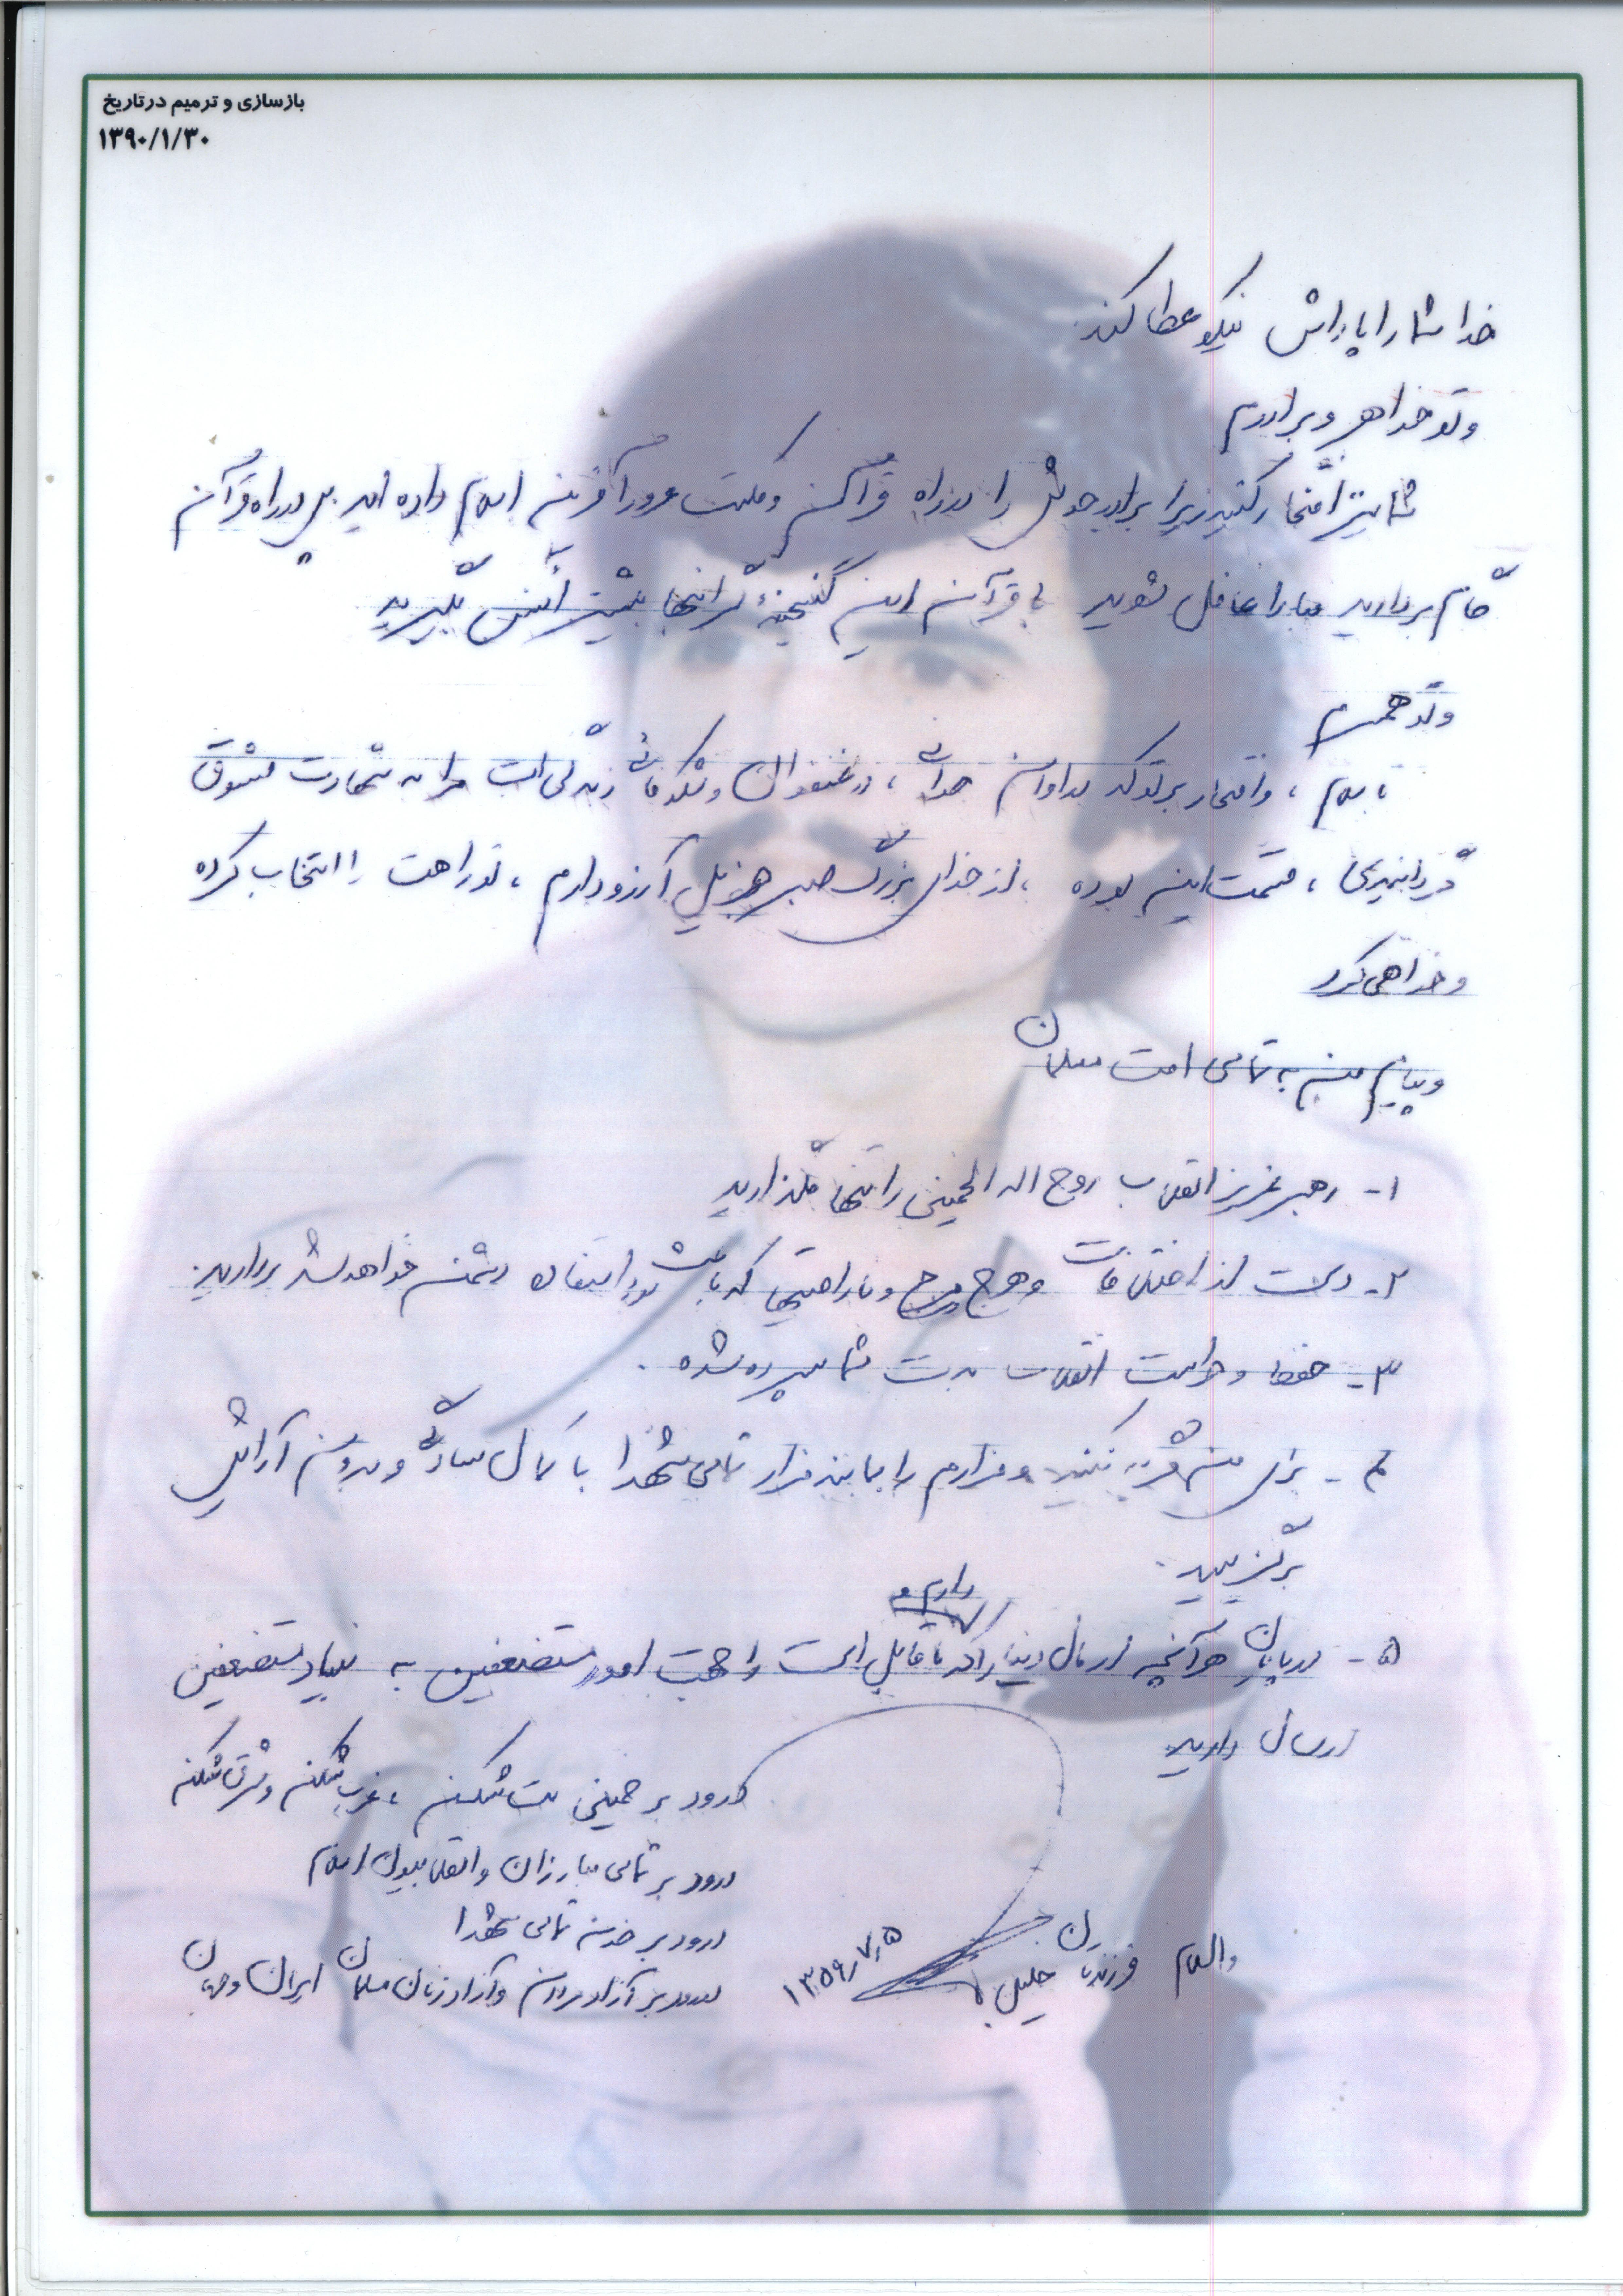 بازسازی و ترمیم در تاریخ
۱۳۹۰/۱/۳۰
خدا شما را پاداش نیکو عطا کند.
و تو خواهر و برادرم
شما نیز افتخار کنید زیرا برادر خویش را در راه قرآن و مکتب غرورآفرین اسلام داده اید پس در راه قرآن
گام بردارید مبادا غافل شوید با قرآن این گنجینهٔ گرانبها بیشتر انس بگیرید
و تو همسرم
سلام، و افتخار بر تو که در عنفوان و شکوفائی زندگی ات مرا به شهادت تشویق
گردانیدی، قسمت این بوده، از خدای بزرگ صبر جزیل آرزو دارم، تو راهت را انتخاب کرده
و خواهی کرد
و پیام من به تمامی امت مسلمان
۱- رهبر عزیز انقلاب روح اله الخمینی را تنها مگذارید
۲- دست از اختلافات و هرج و مرج و ناراحتیها که باعث سوء استفاده دشمن خواهد شد بردارید.
۳- حفظ و حراست انقلاب بدست شما سپرده شده.
۴- برای من گریه نکنید و مزارم را بمانند مزار تمامی شهدا با کمال سادگی و بدون آرایش
برگزینید.
۵- در پایان هر آنچه از مال دنیا را که دارم و ناقابل است را جهت امور مستضعفین به بنیاد مستضعفین
ارسال دارید
درود بر خمینی بت شکن، غرب شکن و شرق شکن
درود بر تمامی مبارزان و انقلابیون اسلام
درود بر خون تمامی شهدا
درود بر آزاد مردان و آزاد زنان مسلمان ایران و جهان
والسلام فرزندتان جلیل
۱۳۵۹/۷/۵